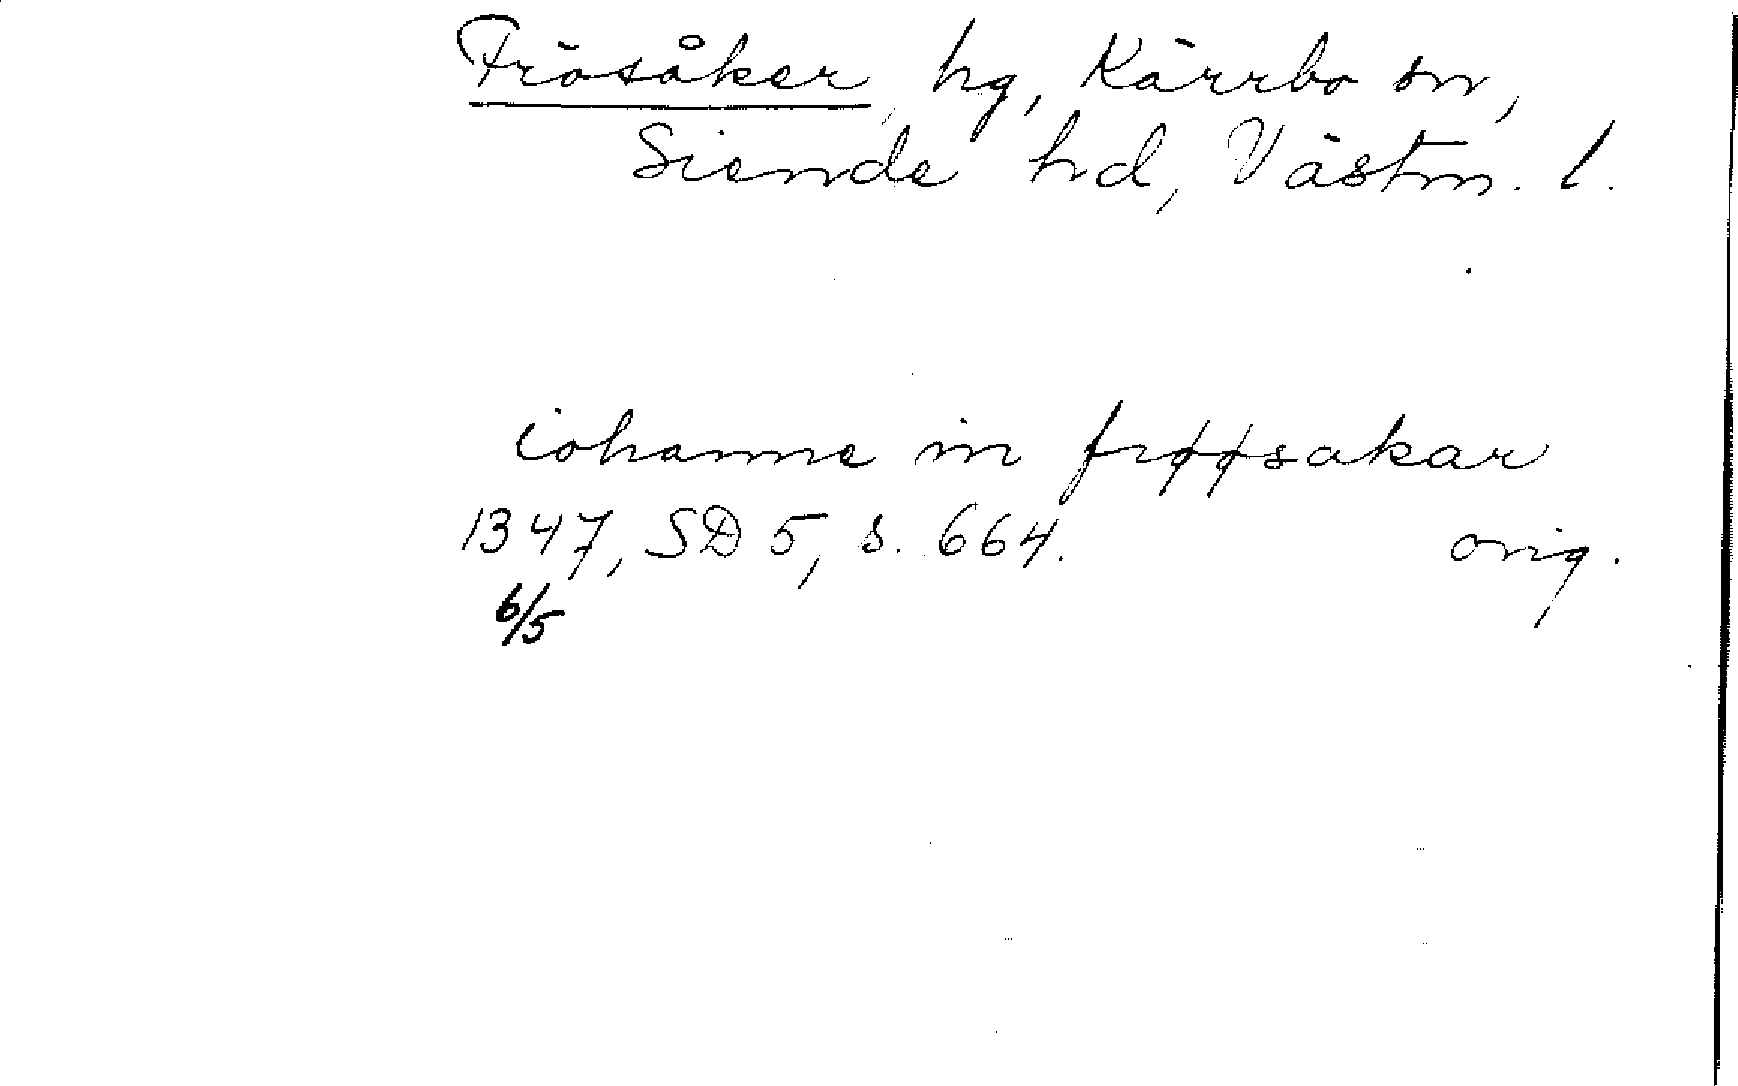 Frösåker, hg, Kärrbo sn,
Siende hd, Västm. l.
iohanne in frøøsakar
1347, SD 5, s. 664. orig.
6/5